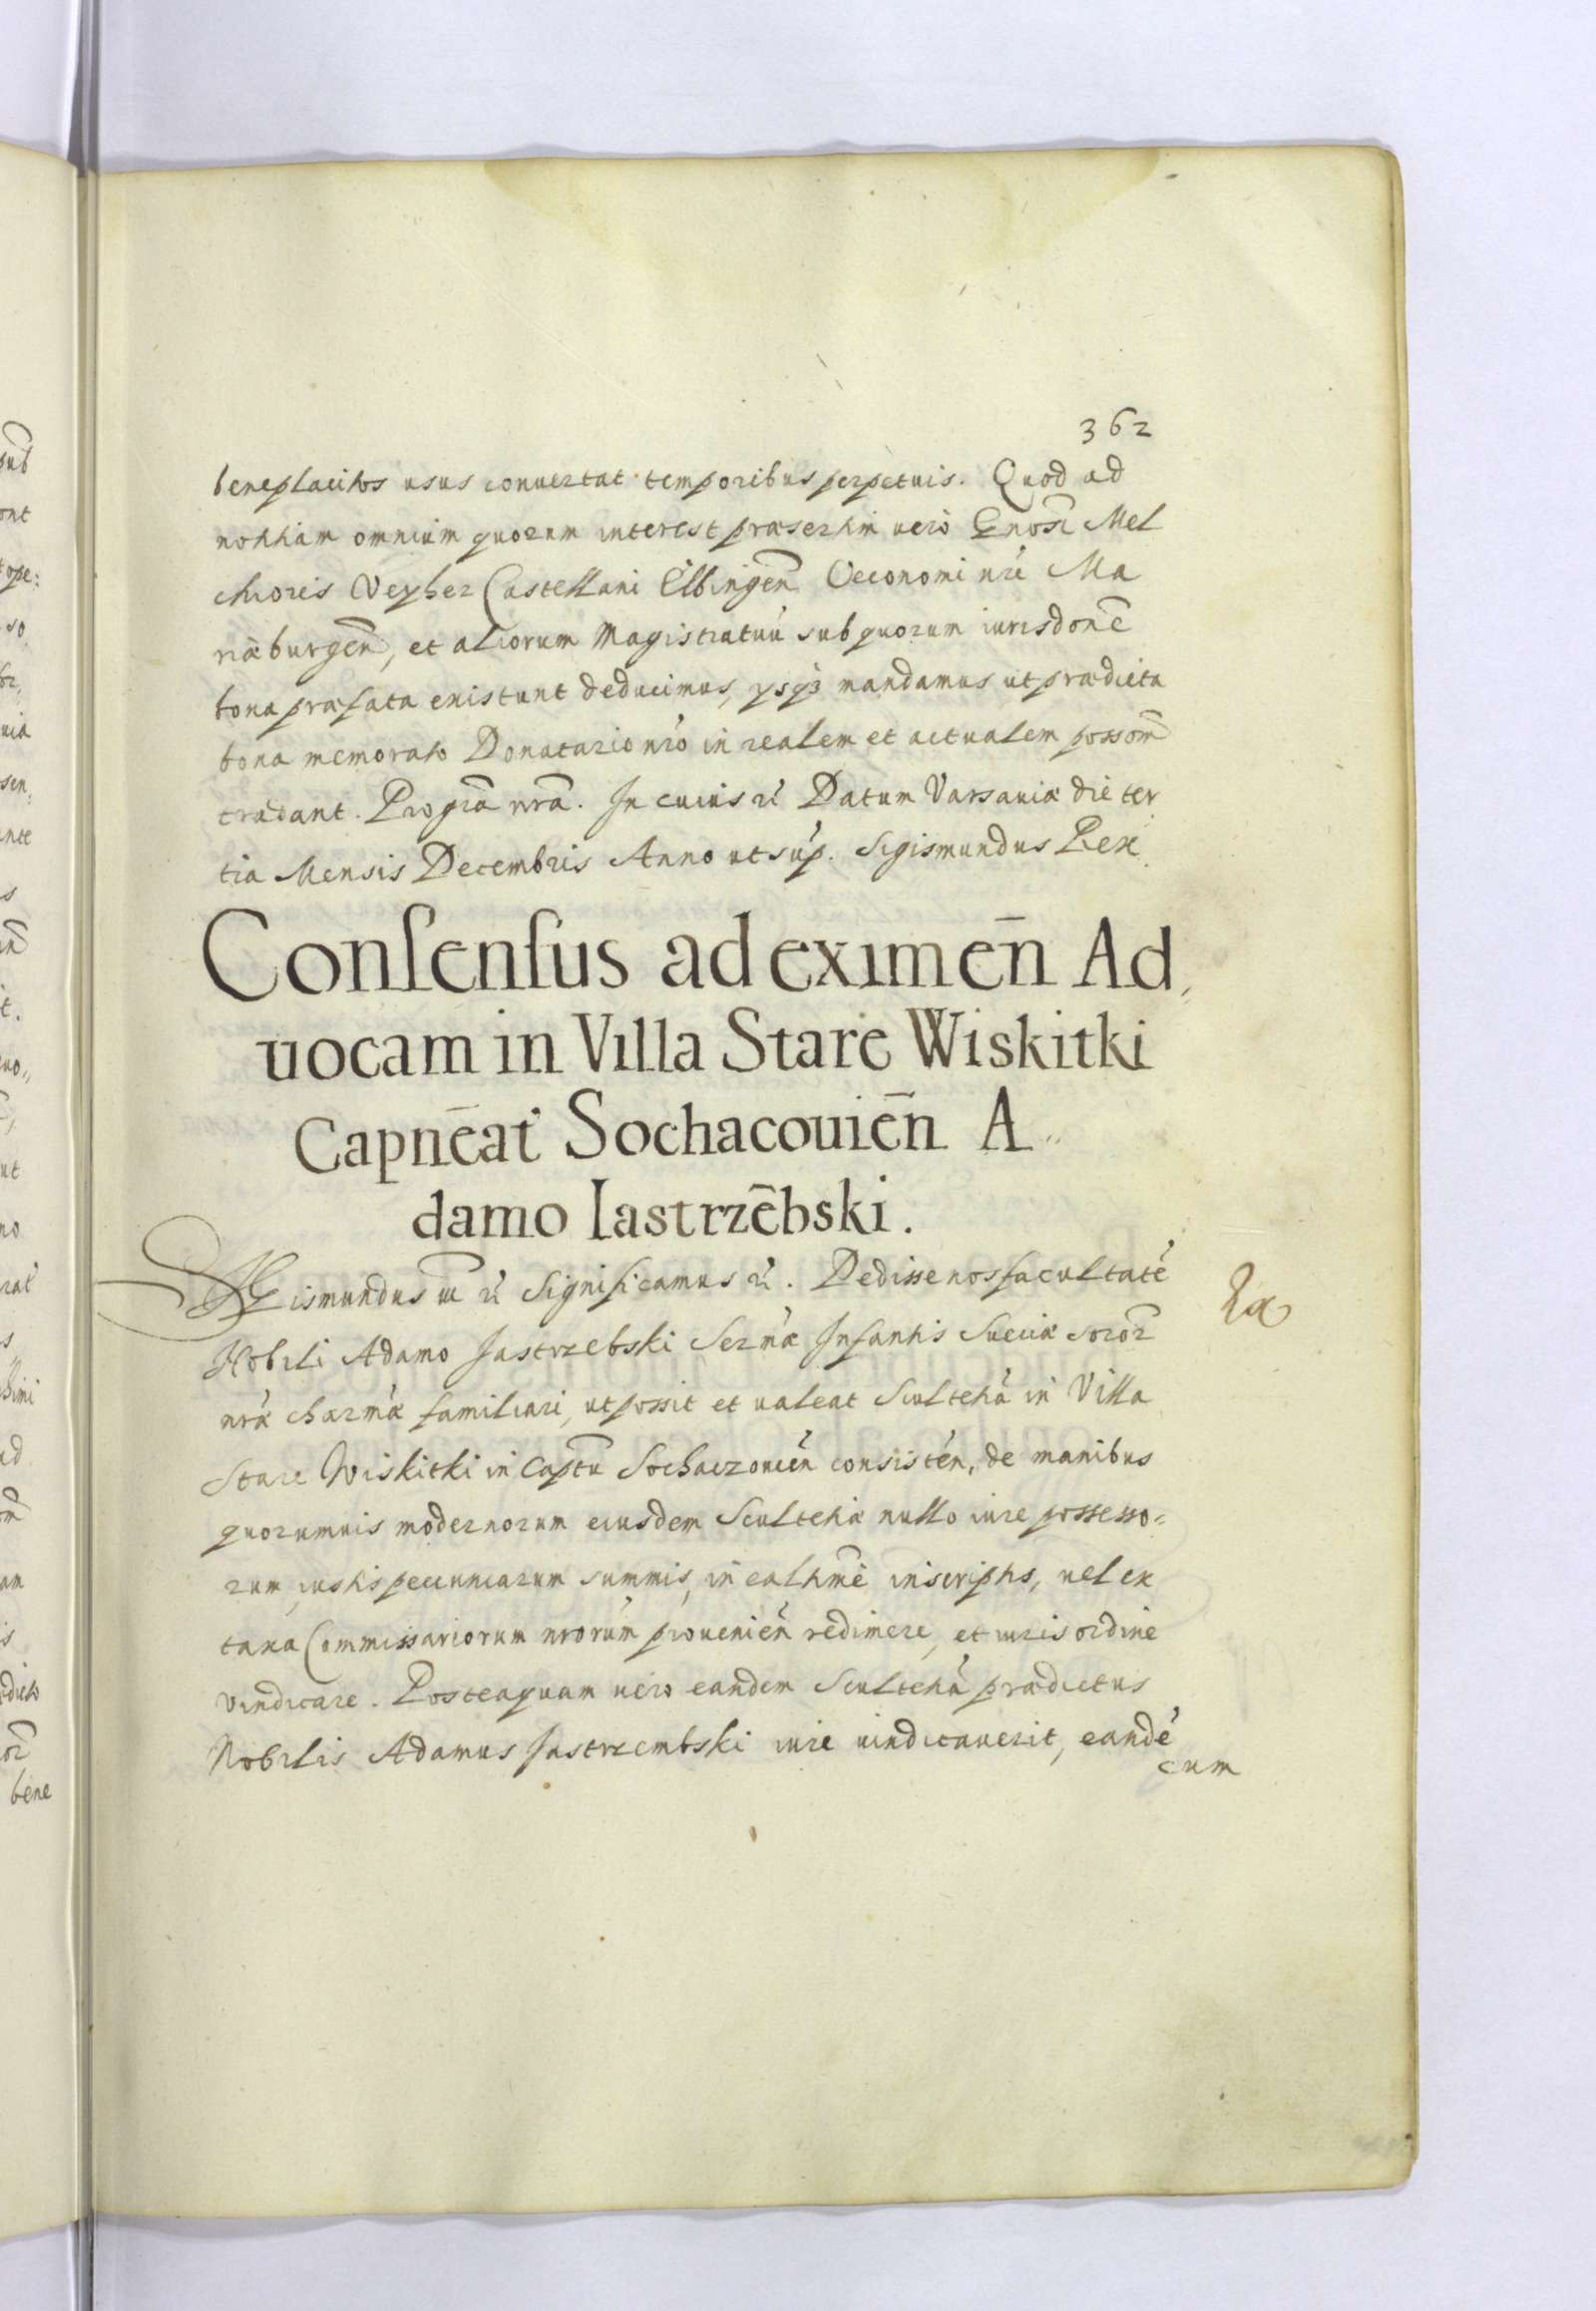 362
beneplacitos usus conuertat temporibus perpetuis. Quod ad
notitiam omnium quorum interest præsertim uero Gnosi Mel
chioris Veyher Castellani Elbingen̄ Oeconomi nri Ma
riæburgen̄, et aliorum Magistratuū sub quorum iurisdone
bona præfata existunt deducimus, ysq3 mandamus ut prædicta
bona memorato Donatario nro in realem et actualem possom̄
tradant. Pro gra nra. In cuius rei Datum Varsauiæ die ter
tia Mensis Decembris Anno ut sup. Sigismundus Rex
Conſenſus ad eximen̄ Ad,
uocam in Villa Stare Wiskitki
Capnēat Sochacouien̄ A
damo Iastrzēbski.
Sigismundus III Significamus. Dedisse nos facultatē
Nobili Adamo Jastrzebski Sermæ Infantis Sueciæ soror̄
nræ charmæ familiari, ut possit et ualeat Scultetiā in Villa
Stare Wiskitki in Captu Sochaczouien̄ consisten̄, de manibus
quorumuis modernorum eiusdem Scultetiæ nullo iure possesso=
rum, iustis pecuniarum summis, in ea ltime inscriptis, uel ex
taxa Commissariorum nrorum prouenien̄ redimere, et iuris ordine
vindicare. Posteaquam uero eandem Scultetiā prædictus
Nobilis Adamus Jastrzembski iure uindicauerit, eandē
cum